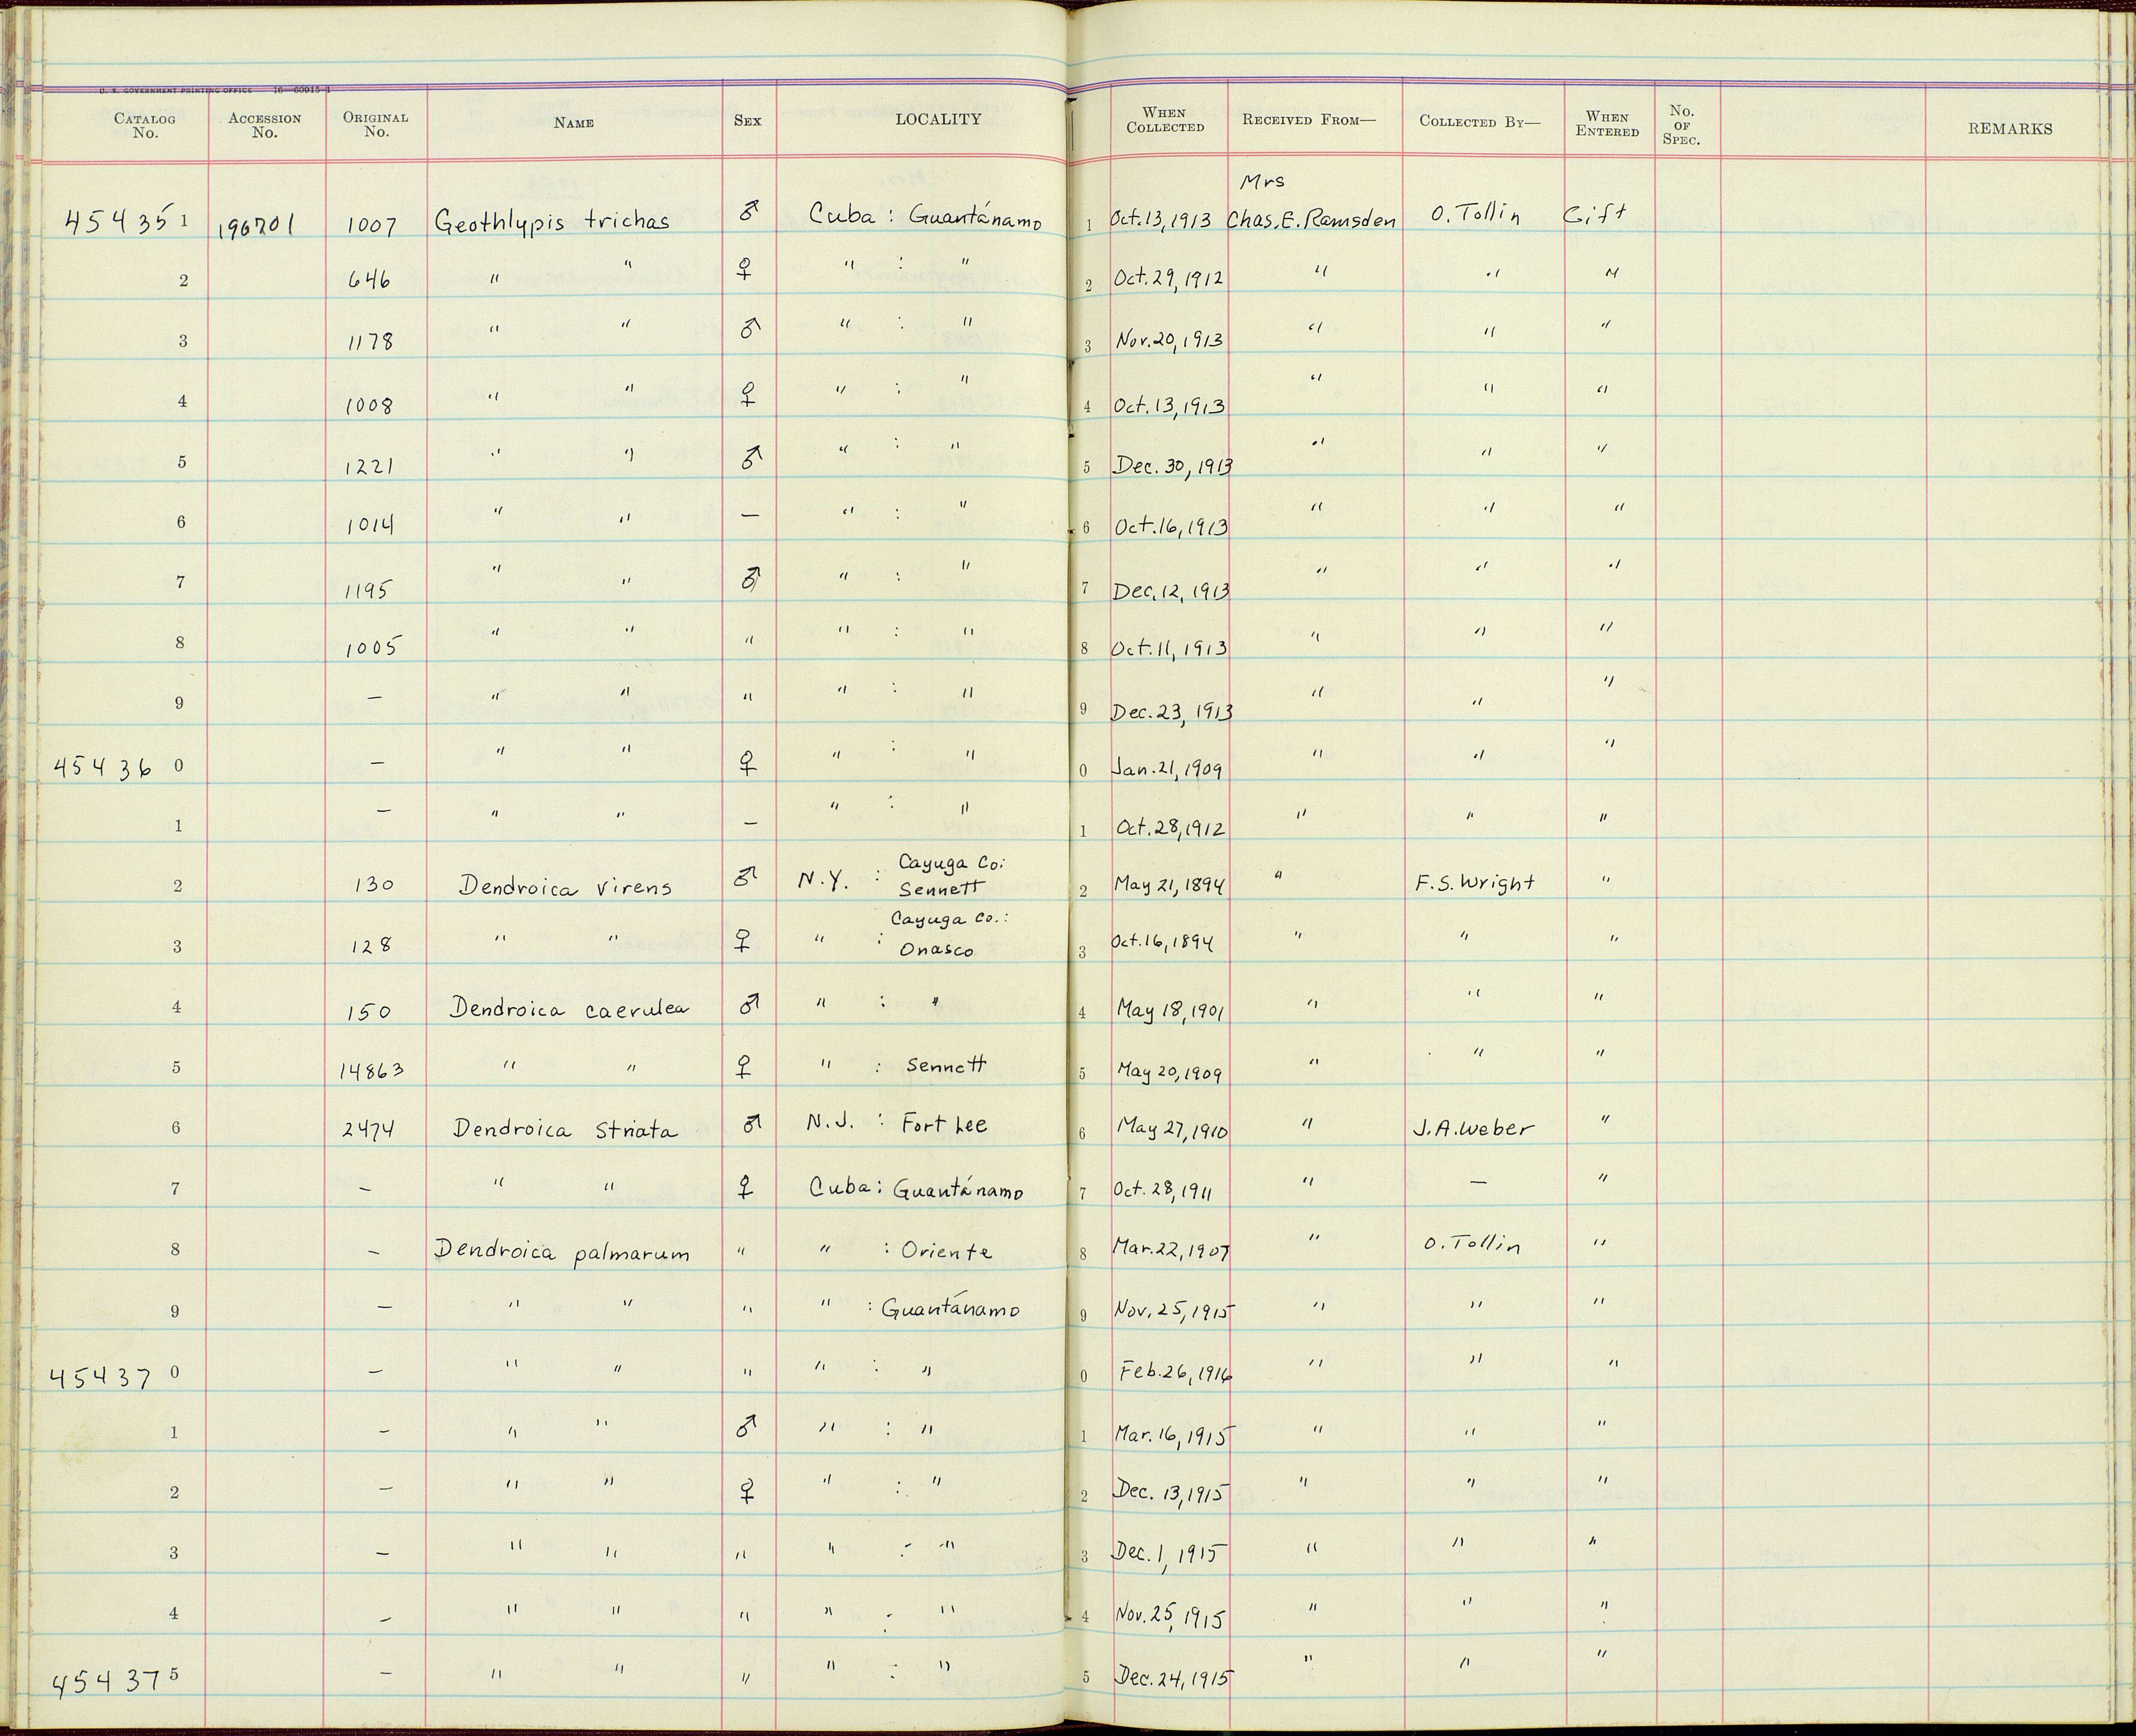 U. S. GOVERNMENT PRINTING OFFICE 16—60015-1
CATALOG No. ACCESSION No. ORIGINAL No. NAME SEX LOCALITY WHEN COLLECTED RECEIVED FROM— COLLECTED BY— WHEN ENTERED No. OF SPEC. REMARKS
Mrs
45435 1 196701 1007 Geothlypis trichas ♂ Cuba : Guantánamo 1 Oct. 13, 1913 Chas. E. Ramsden O. Tollin Gift
2 646 " " ♀ " : " 2 Oct. 29, 1912 " " "
3 1178 " " ♂ " : " 3 Nov. 20, 1913 " " "
4 1008 " " ♀ " : " 4 Oct. 13, 1913 " " "
5 1221 " " ♂ " : " 5 Dec. 30, 1913 " " "
6 1014 " " — " : " 6 Oct. 16, 1913 " " "
7 1195 " " ♂ " : " 7 Dec. 12, 1913 " " "
8 1005 " " " " : " 8 Oct. 11, 1913 " " "
9 — " " " " : " 9 Dec. 23, 1913 " " "
45436 0 — " " ♀ " : " 0 Jan. 21, 1909 " " "
1 — " " — " : " 1 Oct. 28, 1912 " " "
2 130 Dendroica virens ♂ N.Y. : Cayuga Co: Sennett 2 May 21, 1894 " F. S. Wright "
3 128 " " ♀ " : Cayuga Co.: Onasco 3 Oct. 16, 1894 " " "
4 150 Dendroica caerulea ♂ " : " 4 May 18, 1901 " " "
5 14863 " " ♀ " : Sennett 5 May 20, 1909 " " "
6 2474 Dendroica striata ♂ N.J. : Fort Lee 6 May 27, 1910 " J. A. Weber "
7 — " " ♀ Cuba : Guantánamo 7 Oct. 28, 1911 " — "
8 — Dendroica palmarum " " : Oriente 8 Mar. 22, 1907 " O. Tollin "
9 — " " " " : Guantánamo 9 Nov. 25, 1915 " " "
45437 0 — " " " " : " 0 Feb. 26, 1916 " " "
1 — " " ♂ " : " 1 Mar. 16, 1915 " " "
2 — " " ♀ " : " 2 Dec. 13, 1915 " " "
3 — " " " " : " 3 Dec. 1, 1915 " " "
4 — " " " " : " 4 Nov. 25, 1915 " " "
45437 5 — " " " " : " 5 Dec. 24, 1915 " " "